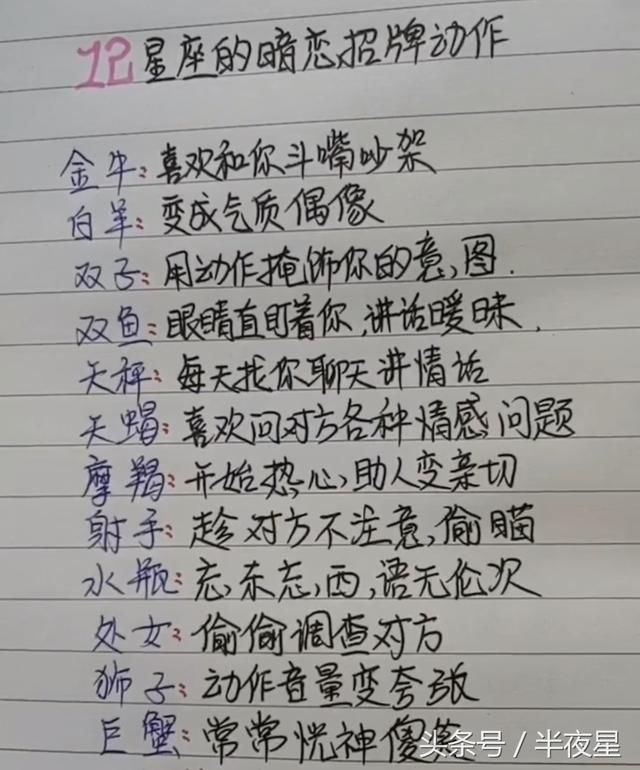 12星座的暗恋招牌动作
金牛:喜欢和你斗嘴吵架
白羊:变成气质偶像
双子:用动作掩饰你的意图.
双鱼:眼睛直盯着你,讲话暧昧.
天秤:每天找你聊天讲情话
天蝎:喜欢问对方各种情感问题
摩羯:开始热心,助人变亲切
射手:趁对方不注意,偷瞄
水瓶:忘东忘西,语无伦次
处女:偷偷调查对方
狮子:动作音量变夸张
巨蟹:常常恍神傻
头条号/半夜星